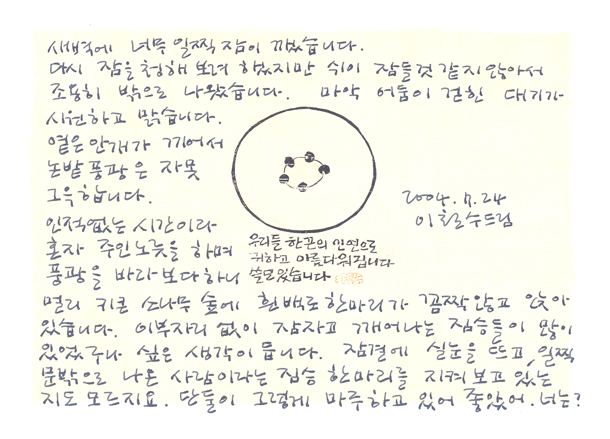 새벽에 너무 일찍 잠이 깨었습니다.
다시 잠을 청해 보려 하였지만 쉬이 잠들것 같지 않아서
조용히 밖으로 나왔습니다. 막 어둠이 걷힌 대기가
시원하고 맑습니다.
옅은 안개가 끼어서
논밭 풍광은 자못
그윽합니다.
인적없는 시간이라
혼자 주인노릇을 하며
풍광을 바라보다하니
우리들 한끈의 인연으로
귀하고 아름다워집니다
쓸모있습니다
2004.7.24
이철수드림
멀리 키큰 소나무 숲에 흰백로 한마리가 꼼짝 않고 앉아
있습니다. 이부자리 없이 잠자고 깨어나는 짐승들이 많이
있었구나 싶은 생각이 듭니다. 잠결에 실눈을 뜨고, 일찍
문밖으로 나온 사람이라는 짐승 한마리를 지켜보고 있는
지도 모르지요. 단둘이 그렇게 마주하고 있어 좋았어. 너는?